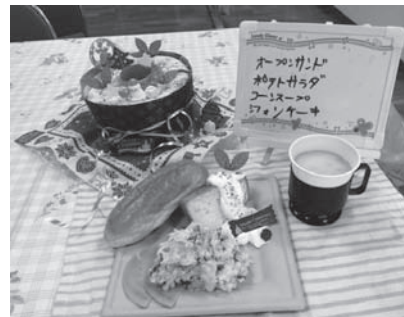 オープンサンド
ポテトサラダ
コーンスープ
シフォンケーキ